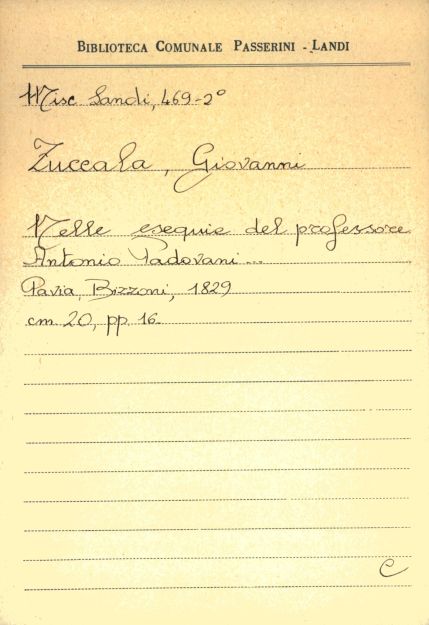 BIBLIOTECA COMUNALE PASSERINI - LANDI
Misc Landi, 469-2°
Zuccala, Giovanni
Nelle esequie del professore
Antonio Padovani...
Pavia, Bizzoni, 1829
cm 20, pp 16.
C